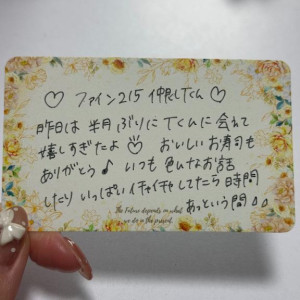 ♡ ファイン215 仲良しTくん ♡
昨日は半月ぶりにTくんに会えて
嬉しすぎたよ おいしいお寿司も
ありがとう♪ いつも色んなお話
したり いっぱいイチャイチャしてたら時間
あっという間
The Future depends on what
we do in the present.